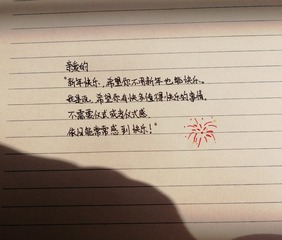 亲爱的
"新年快乐，希望你不用新年也能快乐。
我是说，希望你有很多值得快乐的事情。
不需要仪式或者仪式感
依旧能常常感到快乐！"